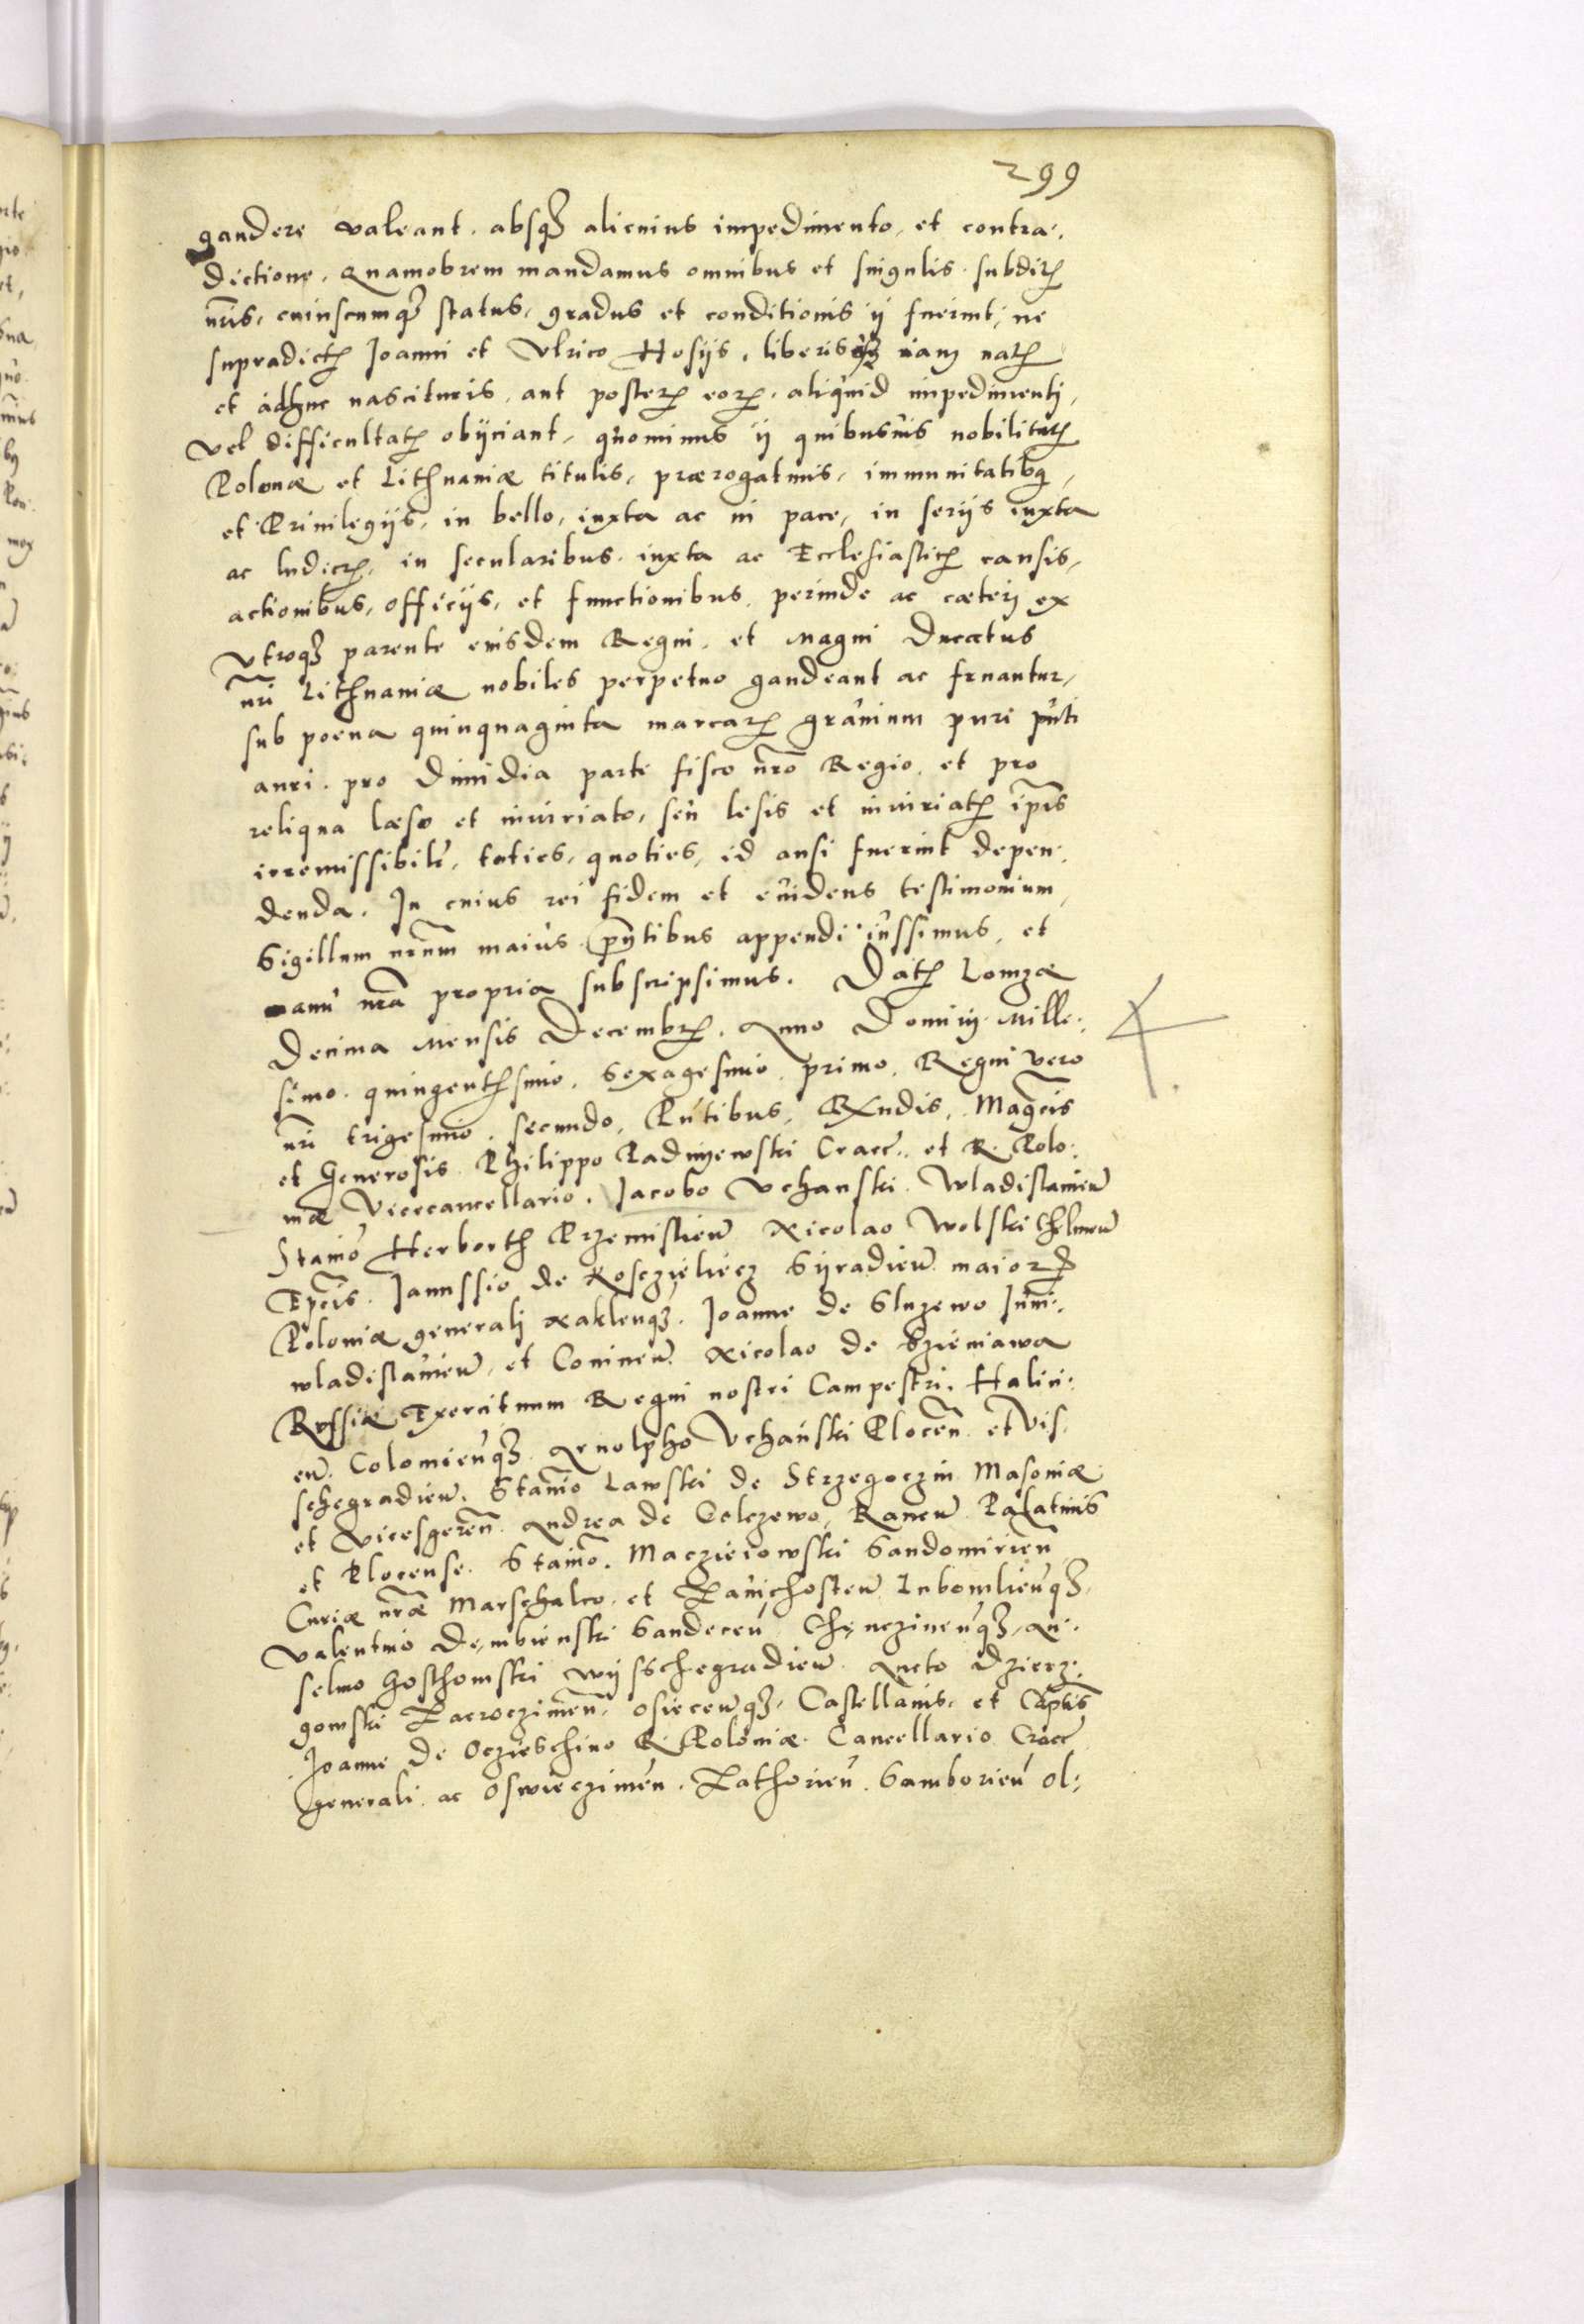 299
gaudere valeant. absq3 alicuius impedimento, et contra:
dictione. Quamobrem mandamus omnibus et singulis subditis
nris, cuiuscumq3 status, gradus et conditionis ij fuerint, ne
supradictis Joanni et Vlrico Hosijs, liberisq3 iam natis
et adhuc nascituris, aut posteris eorum, aliquid impedimenti,
vel difficultatis obijciant, quominus ij quibusuis nobilitatis
Polonæ et Lithuaniæ titulis, prærogatiuis, immunitatibq,
et Priuilegijs, in bello, iuxta ac in pace, in serijs iuxta
ac ludicris, in secularibus iuxta ac Ecclesiasticis causis,
actionibus, officijs, et functionibus, perinde ac cæteri ex
vtroq3 parente eiusdem Regni, et Magni Ducatus
nri Lithuaniæ nobiles perpetuo gaudeant ac fruantur,
sub poena quinquaginta marcarum grauium puri puti
auri. pro dimidia parte fisco nro Regio, et pro
reliqua læso et iniuriato, seu lesis et iniuriatis ipsis
irremissibilr, toties, quoties, id ausi fuerint depen:
denda. In cuius rei fidem et euidens testimonium,
Sigillum nrum maius pntibus appendi iussimus, et
manu nra propria subscripsimus. Datis Lomzæ
Decima Mensis Decembris. Anno Domini Mille:
simo. quingentesimo. Sexagesimo. primo. Regni vero
nri trigesimo. secundo. Pntibus, Rndis, Magcis
et Generosis. Philippo Padniewski Cracc. et R. Polo:
niæ Vicecancellario. Jacobo Vchanski. Wladislauien
Stanio Herborth Przemislien Nicolao Wolski Chelmen
Epcis. Janussio de Kosczieliecz Syradien maioris
Poloniæ generali Naklenq3. Joanne de Sluzewo Juni:
wladislauien, et Coninen. Nicolao de Szieniawa
Russiæ Exercituum Regni nostri Campestri. Halici:
en. Colomienq3. Arnolpho Vchanski Plocen. et Vis:
schegradien. Stanio Lawski de Strzegoczin Masouiæ
et Vicesgeren. Andrea de Colczewo, Rauen Palatinis
et Plocense. Stanio. Macziejowski Sandomirien
Curiæ nræ Marschalco. et Zauichosten Lubomlienq3.
Valentino Dembienski Sandecen Chęnczinenq3, An:
selmo Gosthomski Wysschegradien. Aucto Dzierz:
gowski Zacroczimen, Osiecenq3. Castellanis. et Captis
Joanne de Oczieschino R. Poloniæ. Cancellario Cracc
generali. ac Oswieczimen. Zathorien. Samborien Ol: